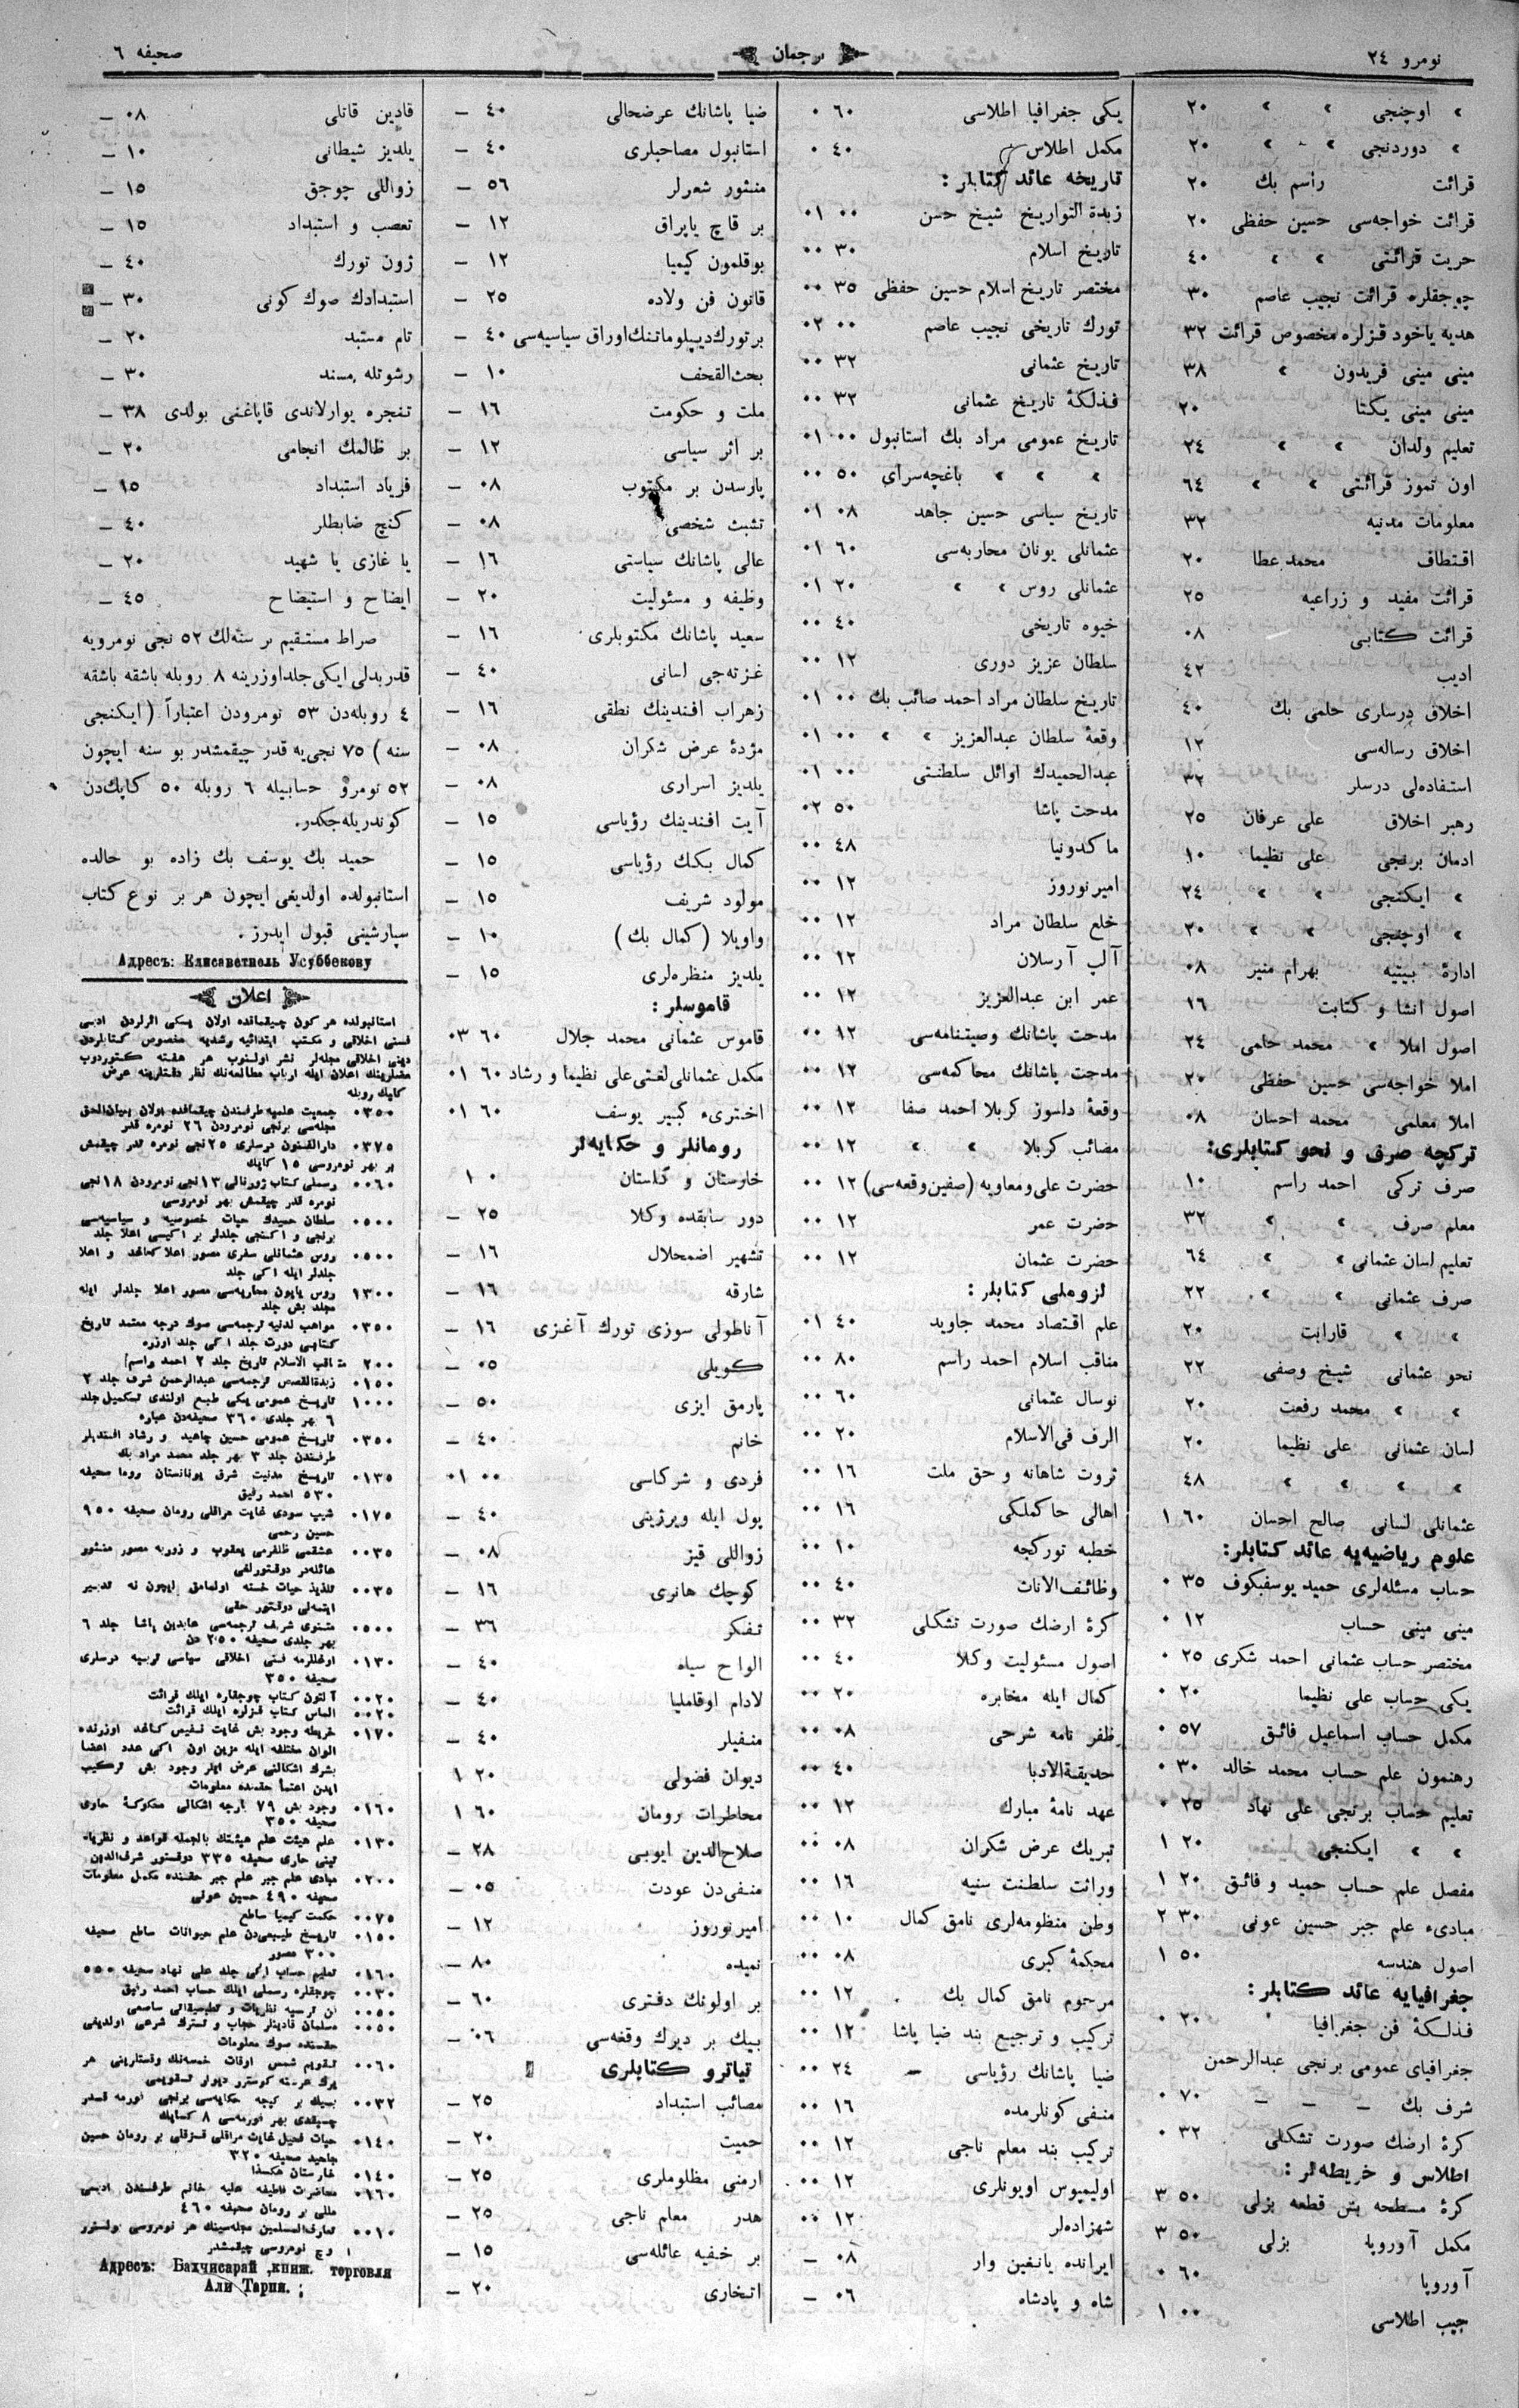 نومرو ٢٤
ترجمان
صحیفه ٦
» اوچنجی » » ٢٠
» دوردنجی » » ٢٠
قرائت راسم بك ٢٠
قرائت خواجه‌سی حسین حفظی ٢٠
حریت قرائتی » » ٤٠
چوجقلره قرائت نجیب عاصم ٣٠
هدیه یاخود قزلره مخصوص قرائت ٣٢
مینی مینی فریدون » ٣٨
مینی مینی یكتا ٢٠
تعلیم ولدان » » ٢٤
اون تموز قرائتی » » ٦٤
معلومات مدنیه ٣٢
اقتطاف محمد عطا ٢٠
قرائت مفید و زراعیه ٢٥
قرائت كتابی ٠٨
ادیب ٤٢
اخلاق درساری حلمی بك ٤٠
اخلاق رساله‌سی ١٢
استفاده‌لی درسلر ٣٢
رهبر اخلاق علی عرفان ٢٥
ادمان برنجی علی نظیما ١٠
» ایكنجی » » ٢٤
» اوچنجی » » ٢٠
ادارهٔ بیتیه بهرام منیر ٠٨
اصول انشا و كتابت ١٦
اصول املا » محمد حلمی ٢٤
املا خواجه‌سی حسین حفظی ٢٠
املا معلمی محمد احسان ٠٨
تركچه صرف و نحو كتابلری:
صرف تركی احمد راسم ١٠
معلم صرف » » ٣٢
تعلیم لسان عثمانی » » ٦٤
صرف عثمانی » » ٢٢
» » قارابت ٢٠
نحو عثمانی شیخ وصفی ٢٢
» » محمد رفعت ٢٠
لسان عثمانی علی نظیما ٢٠
» » » » ٤٨
عثمانلی لسانی صالح احسان ٦٠ ١
علوم ریاضیه‌یه عائد كتابلر:
حساب مسئله‌لری حمید یوسفبكوف ٣٥ ٠
مینی مینی حساب ١٢ ٠
مختصر حساب عثمانی احمد شكری ٢٥ ٠
یكی حساب علی نظیما ٢٠ ٠
مكمل حساب اسماعیل فائق ٥٧ ٠
رهنمون علم حساب محمد خالد ٣٠ ٠
تعلیم حساب برنجی علی نهاد ٢٥ ٠
» » ایكنجی ٢٠ ١
مفصل علم حساب حمید و فائق ٢٠ ١
مبادیء علم جبر حسین عونی ٣٠ ٢
اصول هندسه ٥٠ ١
جغرافیایه عائد كتابلر:
فذلكهٔ فن جغرافیا ٢٠ ٠
جغرافیای عمومی برنجی عبدالرحمن
شرف بك — — — ٧٠ ٠
كرهٔ ارضك صورت تشكلی ٣٢ ٠
اطلاس و خریطه‌لر:
كرهٔ مسطحه بش قطعه بزلی ٥٠ ٣
مكمل آوروپا بزلی ٥٠ ٣
آوروپا ٦٠ ٠
جیب اطلاسی ٠٠ ١
یكی جغرافیا اطلاسی ٦٠ ٠
مكمل اطلاس ٤٠ ٠
تاریخه عائد كتابلر:
زبدة التواریخ شیخ حسن ٠٠ ٠١
تاریخ اسلام ٣٠ ٠٠
مختصر تاریخ اسلام حسین حفظی ٣٥ ٠٠
تورك تاریخی نجیب عاصم ٠٠ ٠٢
تاریخ عثمانی ٣٢ ٠٠
فذلكهٔ تاریخ عثمانی ٣٢ ٠٠
تاریخ عمومی مراد بك استانبول ٠٠ ٠١
» » » باغچه‌سرای ٥٠ ٠٠
تاریخ سیاسی حسین جاهد ٠٨ ٠١
عثمانلی یونان محاربه‌سی ٦٠ ٠١
عثمانلی روس » » ٢٠ ٠١
خیوه تاریخی ٤٠ ٠٠
سلطان عزیز دوری ١٢ ٠٠
تاریخ سلطان مراد احمد صائب بك ٠٠ ٠١
وقعهٔ سلطان عبدالعزیز » » ٠٠ ٠١
عبدالحمیدك اوائل سلطنتی ٠٠ ٠١
مدحت پاشا ٥٠ ٠٢
ماكدونیا ٤٨ ٠٠
امیر نوروز ١٢ ٠٠
خلع سلطان مراد ١٢ ٠٠
آلپ آرسلان ١٢ ٠٠
عمر ابن عبدالعزیز ١٢ ٠٠
مدحت پاشانك وصیتنامه‌سی ١٢ ٠٠
مدحت پاشانك محاكمه‌سی ١٢ ٠٠
وقعهٔ دلسوز كربلا احمد صفا ١٢ ٠٠
مصائب كربلا » » ١٢ ٠٠
حضرت علی و معاویه (صفین وقعه‌سی) ١٢ ٠٠
حضرت عمر ١٢ ٠٠
حضرت عثمان ١٢ ٠٠
لزوملی كتابلر:
علم اقتصاد محمد جاوید ٤٠ ٠١
مناقب اسلام احمد راسم ٨٠ ٠٠
نوسال عثمانی ٦٠ ٠٠
الرف فی الاسلام ٢٠ ٠٠
ثروت شاهانه و حق ملت ١٦ ٠٠
اهالی حاكملكی ١٦ ٠٠
خطبه توركجه ١٠ ٠٠
وظائف الاناث ٤٠ ٠٠
كرهٔ ارضك صورت تشكلی ٣٢ ٠٠
اصول مسئولیت وكلا ٤٠ ٠٠
كمال ایله مخابره ٢٠ ٠٠
ظفر نامه شرحی ٠٨ ٠٠
حدیقة الادبا ٤٠ ٠٠
عهد نامهٔ مبارك ١٢ ٠٠
تبریك عرض شكران ٠٨ ٠٠
وراثت سلطنت سنیه ١٦ ٠٠
وطن منظومه‌لری نامق كمال ١٠ ٠٠
محكمهٔ كبری ٠٨ ٠٠
مرحوم نامق كمال بك ١٢ ٠٠
تركیب و ترجیع بند ضیا پاشا ١٢ ٠٠
ضیا پاشانك رؤیاسی — ٢٤ ٠٠
منفی كونلرمده ١٦ ٠٠
تركیب بند معلم ناجی ١٢ ٠٠
اولیمپوس اویونلری ١٢ ٠٠
شهزاده‌لر ١٢ ٠٠
ایرانده یانغین وار ٠٨ —
شاه و پادشاه ٠٦ —
ضیا پاشانك عرضحالی ٤٠ —
استانبول مصاحبلری ٤٠ —
منثور شعرلر ٥٦ —
بر قاچ یاپراق ١٢ —
بوقلمون كیمیا ١٢ —
قانون فن ولاده ٢٥ —
بر تورك دیپلوماتنك اوراق سیاسیه‌سی ٤٠ —
بحث القحف ١٠ —
ملت و حكومت ١٦ —
بر اثر سیاسی ١٢ —
پارسدن بر مكتوب ٠٨ —
تشبث شخصی ٠٨ —
عالی پاشانك سیاستی ١٦ —
وظیفه و مسئولیت ٢٠ —
سعید پاشانك مكتوبلری ١٦ —
غزته‌جی لسانی ٤٠ —
زهراب افندینك نطقی ١٦ —
مژدهٔ عرض شكران ٠٨ —
یلدیز اسراری ٠٨ —
آیت افندینك رؤیاسی ١٥ —
كمال بكك رؤیاسی ١٥ —
مولود شریف ١٥ —
واویلا (كمال بك) ١٠ —
یلدیز منظره‌لری ١٥ —
قاموسلر:
قاموس عثمانی محمد جلال ٦٠ ٠٣
مكمل عثمانلی لغتی علی نظیما و رشاد ٦٠ ٠١
اختریء كبیر یوسف ٦٠ ٠١
رومانلر و حكایه‌لر
خارستان و گلستان ٠ ١
دور سابقده وكلا ٢٥ —
تشهیر اضمحلال ١٦ —
شارقه ١٦ —
آناطولی سوزی تورك آغزی ١٦ —
كویلی ٠٥ —
پارمق ایزی ٥٠ —
خانم ٤٠ —
فردی و شركاسی ٠٠ ٠١
پول ایله ویرژینی ٤٠ —
زواللی قیز ٠٨ —
كوچك هانری ١٦ —
تفكر ٣٦ —
الواح سیاه ٤٠ —
لادام اوقاملیا ٤٠ —
منفیلر ٤٠ —
دیوان فضولی ٢٠ ١
محاطرات رومان ٦٠ ١
صلاح‌الدین ایوبی ٢٨ —
منفی‌دن عودت ٠٥ —
امیر نوروز ١٢ —
نمیده ٨٠ —
بر اولونك دفتری ٦٠ —
بیك بر دیرك وقعه‌سی ٠٦ —
تیاترو كتابلری
مصائب استبداد ٢٥ —
حمیت ٢٠ —
ارمنی مظلوملری ٢٥ —
هدر معلم ناجی ٢٥ —
بر خفیه عائله‌سی ١٥ —
اتخاری ٢٠ —
قادین قاتلی ٠٨ —
یلدیز شیطانی ١٠ —
زواللی چوجق ١٥ —
تعصب و استبداد ١٥ —
ژون تورك ٤٠ —
استبدادك صوك كونی ٣٠ —
تام مستبد ٢٠ —
رشوتله مسند ٣٠ —
تنجره یوارلاندی قاپاغنی بولدی ٣٨ —
بر ظالمك انجامی ٢٠ —
فریاد استبداد ١٥ —
كنج ضابطلر ٤٠ —
یا غازی یا شهید ٢٠ —
ایضاح و استیضاح ٤٥ —
صراط مستقیم بر سنه‌لك ٥٢ نجی نومرویه
قدر بدلی ایكی جلد اوزرینه ٨ روبله باشقه باشقه
٤ روبله‌دن ٥٣ نومرودن اعتباراً (ایكنجی
سنه) ٧٥ نجی‌یه قدر چیقمشدر بو سنه ایچون
٥٢ نومرو حسابیله ٦ روبله ٥٠ كاپك‌دن
كوندریله‌جكدر.
حمید بك یوسف بك زاده بو حالده
استانبولده اولدیغی ایچون هر بر نوع كتاب
سپارشینی قبول ایدرز.
Адресъ: Елисаветполь Усуббекову
اعلان
استانبولده هر كون چیقماقده اولان یسكی اثرلردن ادبی
فنی اخلاقی و مكتب ابتدائیه رشدیه مخصوص كتابلردن
دینی اخلاقی مجله‌لر نشر اولنوب هر هفته كتوردوب
اعلان ایله ارباب مطالعه‌نك نظر دقتلرینه عرض
كاپك روبله
٠٣٥٠ جمعیت علمیه طرفندن چیقماقده اولان بیان‌الحق
مجله‌سی برنجی نومرودن ٢٦ نومره قدر
٠٣٧٥ دارالفنون درسلری ٢٥نجی نومره قدر چیقمش
بر بهر نومروسی ١٥ كاپك
٠٠٦٠ رسملی كتاب ژورنالی ١٣نجی نومرودن ١٨نجی
نومره قدر چیقمش بهر نومروسی
٠٥٠٠ سلطان حمیدك حیات خصوصیه و سیاسیه‌سی
برنجی و اكنجی جلدلر بر اكیسی اعلا جلد
٠٥٠٠ روس عثمانلی سفری مصور اعلا كاغد و اعلا
جلدلر ایله اكی جلد
١٣٠٠ روس یاپون محاربه‌سی مصور اعلا جلدلر ایله
مجلد بش جلد
٠٣٥٠ مواهب لدنیه ترجمه‌سی صوك درجه معتمد تاریخ
كتابی دورت جلد اكی جلد اوزره
٢٠٠ مناقب الاسلام تاریخ جلد ٢ احمد راسم
٠١٥٠ زبدةالقصص ترجمه‌سی عبدالرحمن شرف جلد ٢
١٠٠٠ تاریخ عمومی یكی طبع اولندی تكمیل جلد
٦ بهر جلدی ٣٦٠ صحیفه‌دن عباره
٠٣٥٠ تاریخ عمومی حسین جاهید و رشاد افندیلر
طرفندن جلد ٣ بهر جلد محمد مراد بك
٠١٣٥ تاریخ مدنیت شرق یونانستان روما صحیفه
٥٣٠ احمد رفیق
٠١٧٥ شیپ سودی غایت مراقلی رومان صحیفه ٩٥٠
حسین رحمی
٠٠٣٥ عشقمی ظفرمی یعقوب و زوربه مصور منثور
دوقتورلغی
٠٠٣٥ تلذیذ حیات خسته اولمامق ایچون نه تدبیر
ایتمه‌لی دوقتور حقی
٠٥٠٠ مثنوی شریف ترجمه‌سی عابدین پاشا جلد ٦
بهر جلدی صحیفه ٢٥٠ دن
٠١٣٠ اوغللرمه فنی اخلاقی سیاسی تربیه درسلری
صحیفه ٣٥٠
٠٠٢٠ آلتون كتاب چوجقلره ایلك قرائت
٠٠٢٠ الماس كتاب قزلره ایلك قرائت
٠١٧٠ خریطه وجود بش غایت نفیس كاغد اوزرنده
الوان مختلفه ایله مزین اون اكی عدد اعضا
بشرك اشكالنی عرض ایدر وجود بش تركیب
ایدن اعضا حقنده معلومات
٠١٦٠ وجود بش ٧٩ پارچه اشكالی مفكوكهٔ حاوی
صحیفه ٣٥٠
٠١٣٠ علم هیئت علم هیئتك بالجمله قواعد و نظریا-
تینی حاری صحیفه ٣٣٥ دوقتور شرف‌الدین
٠٢٠٠ مبادی علم جبر علم جبر حقنده مكمل معلومات
صحیفه ٤٩٠ حسین عونی
٠٠٧٥ حكمت كیمیا ساطع
٠١٥٠ تاریخ طبیعی‌دن علم حیوانات ساطع صحیفه
٣٠٠ مصور
٠١٦٠ تعلیم حساب اكی جلد علی نهاد صحیفه ٥٥٠
٠٠٣٠ چوجقلره رسملی ایلك حساب احمد رفیق
٠٠٥٠ فن تربیه نظریات و تطبیقاتی ساطعی
٠٠٥٠ مسلمان قادینلر حجاب و تسترك شرعی اولدیغی
حقنده صوك معلومات
٠٠٦٠ تقویم شمس اوقات خمسه‌نك وقتلرینی هر
كوسترر دیوار تقویمی
٠٠٣٢ بیك بر كیجه حكایه‌سی برنجی نورمه قدر
چیقدی بهر نورمه‌سی ٨ كاپك
٠١٤٠ حیات مخیل غایت مراقلی قزقلی بر رومان حسین
جاهید صحیفه ٣٢٠
٠١٤٠ خارستان
٠١٦٠ محاضرت فاطمه علیه خانم طرفندن ادبی
مللی بر رومان صحیفه ٤٦٠
٠٠١٠ تعارف‌المسلمین مجله‌سینك هر نومروسی بولنور
١ و ج نومروسی چیقمشدر
Адресъ: Бахчисарай, книж. торговля
Али Тарпи.